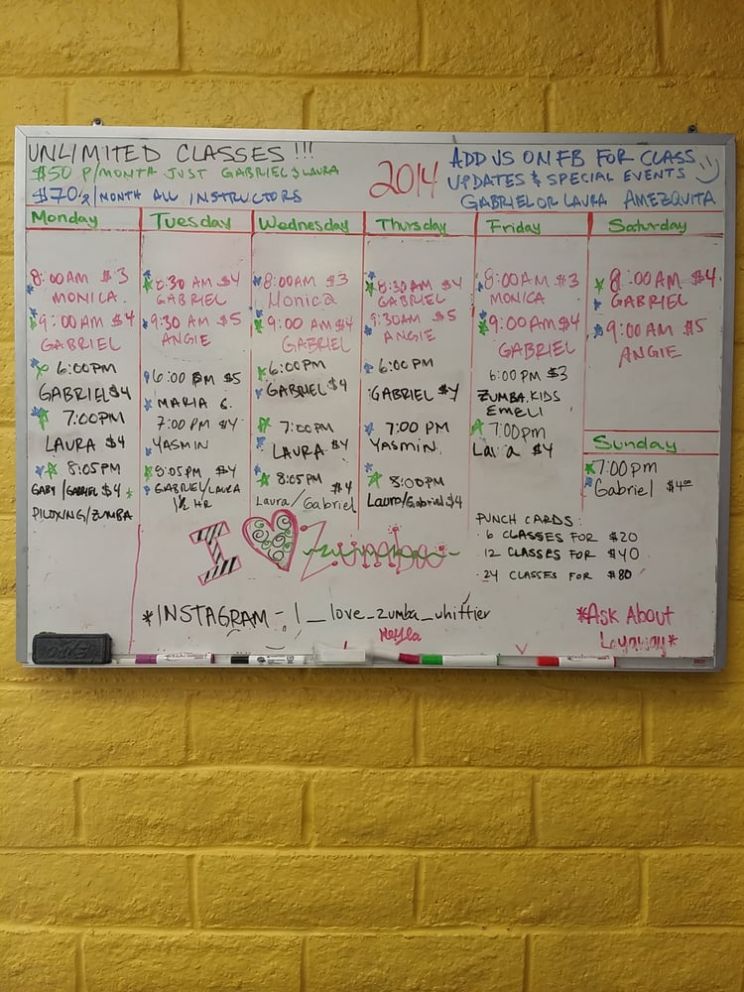 UNLIMITED CLASSES !!!
$50 P/MONTH JUST GABRIEL & LAURA
$70 /MONTH ALL INSTRUCTORS
2014
ADD US ON FB FOR CLASS
UPDATES & SPECIAL EVENTS
GABRIEL OR LAURA AMEZQUITA
Monday
8:00AM $3
MONICA
9:00AM $4
GABRIEL
6:00PM
GABRIEL $4
7:00PM
LAURA $4
8:05PM
GABY/GABRIEL $4
PILOXING/ZUMBA
Tuesday
8:30 AM $4
GABRIEL
9:30 AM $5
ANGIE
6:00 PM $5
MARIA G.
7:00 PM $4
YASMIN
8:05PM $4
GABRIEL/LAURA
1½ HR
Wednesday
8:00AM $3
Monica
9:00 AM $4
GABRIEL
6:00PM
GABRIEL $4
7:00PM
LAURA $4
8:05PM $4
Laura/Gabriel
Thursday
8:30AM $4
GABRIEL
9:30AM $5
ANGIE
6:00PM
GABRIEL $4
7:00 PM
YASMIN
8:00PM
Laura/Gabriel $4
Friday
8:00AM $3
MONICA
9:00AM $4
GABRIEL
6:00 PM $3
ZUMBA KIDS
EMELI
7:00pm
Lau a $4
Saturday
8:00AM $4
GABRIEL
9:00AM $5
ANGIE
Sunday
7:00pm
Gabriel $4.00
PUNCH CARDS:
6 CLASSES FOR $20
12 CLASSES FOR $40
24 CLASSES FOR $80
I Zumba
*INSTAGRAM - I_love_zumba_whittier
*Ask About
Layaway*
EXPO